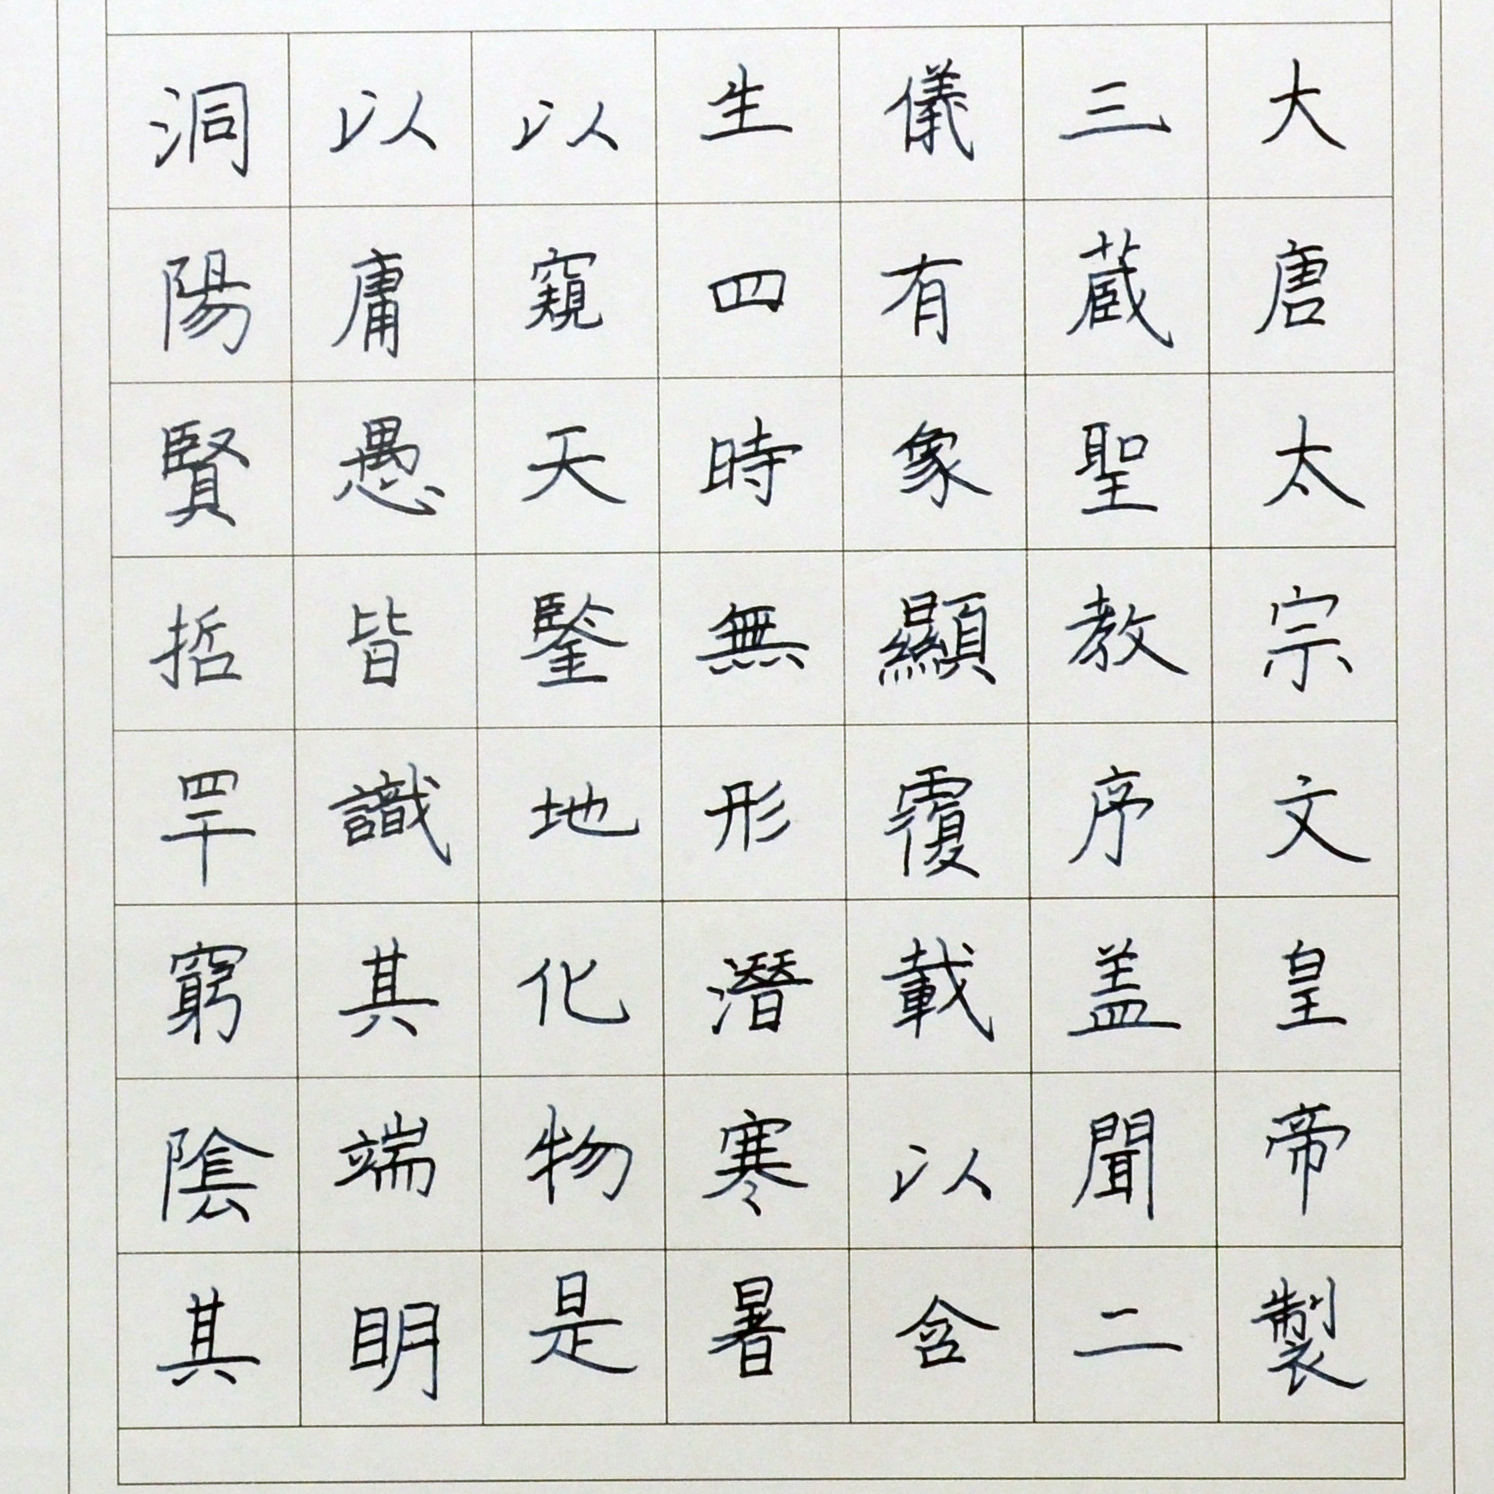 大唐太宗文皇帝製
三蔵聖教序盖聞二
儀有象顯覆載以含
生四時無形潛寒暑
以窺天鑒地化物是
以庸愚皆識其端明
洞陽賢哲罕窮陰其